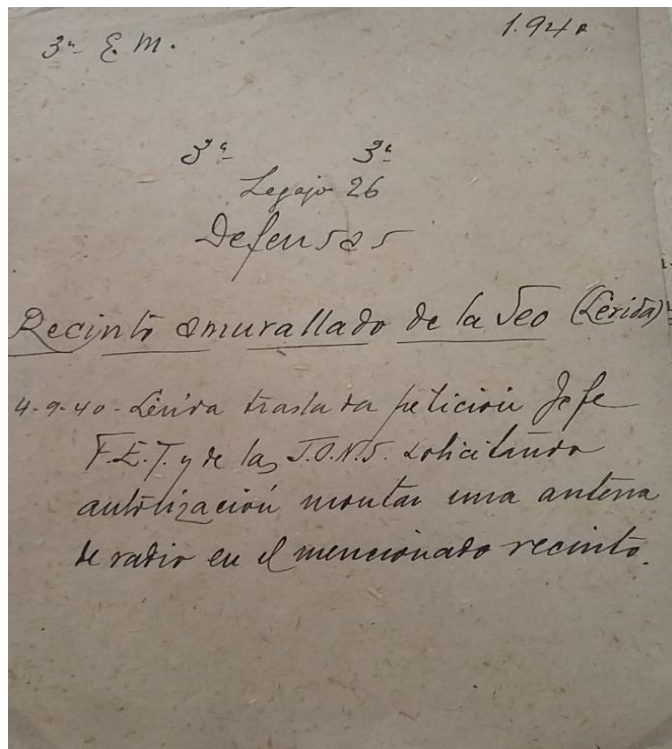 3ª E. M.
1.940
3ª 3ª
Legajo 26
Defensas
Recinto amurallado de la Seo (Lerida)
4-9-40 - Lérida traslada petición Jefe
F.E.T. y de las J.O.N.S. solicitando
autorización montar una antena
de radio en el mencionado recinto.